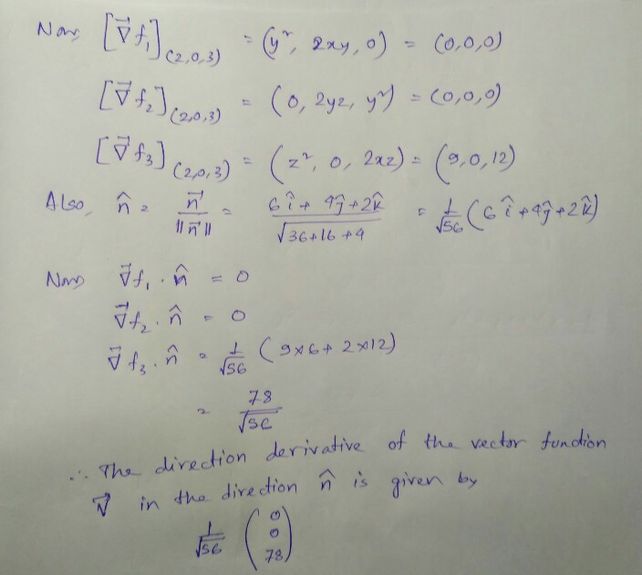 Now, [∇⃗f₁]₍₂,₀,₃₎ = (y², 2xy, 0) = (0,0,0)
[∇⃗f₂]₍₂,₀,₃₎ = (0, 2yz, y²) = (0,0,0)
[∇⃗f₃]₍₂,₀,₃₎ = (z², 0, 2xz) = (9,0,12)
Also, n̂ = n⃗/||n⃗|| = (6î + 4ĵ + 2k̂)/√(36+16+4) = 1/√56 (6î + 4ĵ + 2k̂)
Now ∇⃗f₁ · n̂ = 0
∇⃗f₂ · n̂ = 0
∇⃗f₃ · n̂ = 1/√56 (9×6 + 2×12)
= 78/√56
∴ The direction derivative of the vector function
V⃗ in the direction n̂ is given by
1/√56 (0
0
78)